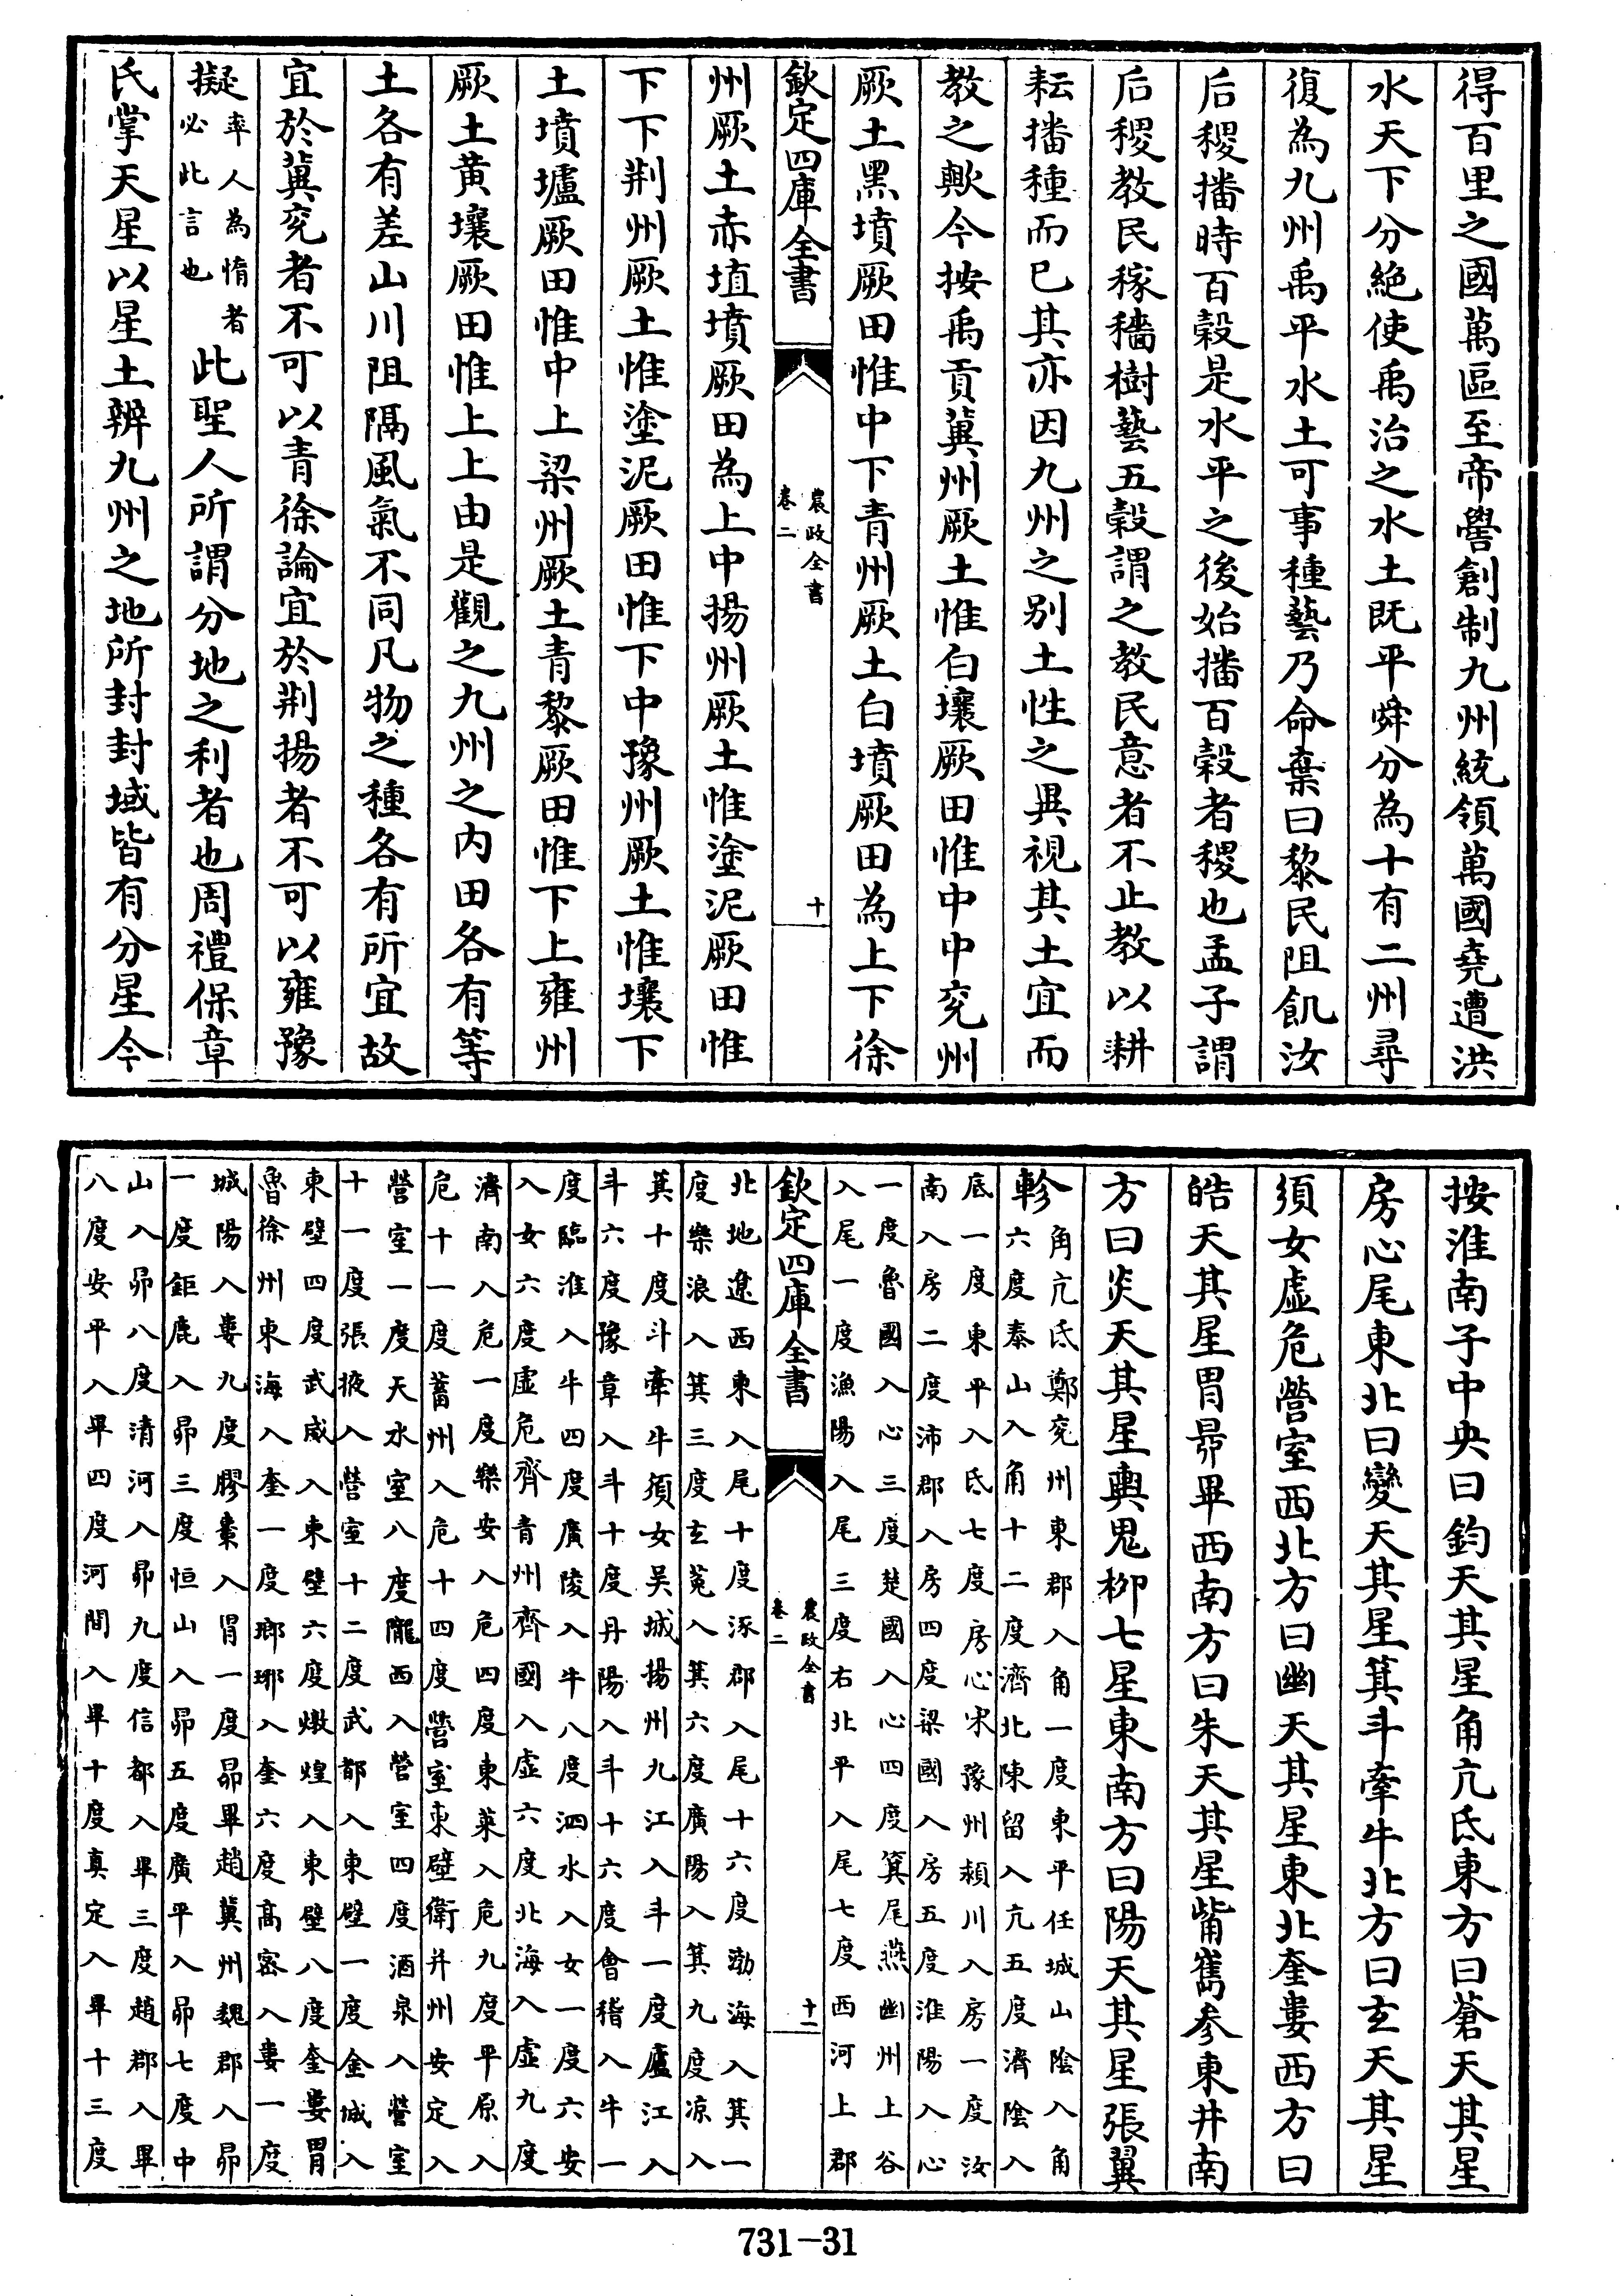 得百里之國萬區至帝嚳創制九州統領萬國堯遭洪
水天下分絶使禹治之水土既平舜分為十有二州尋
復為九州禹平水土可事種藝乃命棄曰黎民阻飢汝
后稷播時百榖是水平之後始播百榖者稷也孟子謂
后稷教民稼穡樹藝五榖謂之教民意者不止教以耕
耘播種而已其亦因九州之别土性之異視其土宜而
教之歟今按禹貢冀州厥土惟白壤厥田惟中中兖州
厥土黑墳厥田惟中下青州厥土白墳厥田為上下徐
欽定四庫全書
農政全書
卷二
十
州厥土赤埴墳厥田為上中揚州厥土惟塗泥厥田惟
下下荆州厥土惟塗泥厥田惟下中豫州厥土惟壤下
土墳壚厥田惟中上梁州厥土青黎厥田惟下上雍州
厥土黄壤厥田惟上上由是觀之九州之内田各有等
土各有差山川阻隔風氣不同凡物之種各有所宜故
宜於冀兖者不可以青徐論宜於荆揚者不可以雍豫
擬率人為惰者
必此言也
此聖人所謂分地之利者也周禮保章
氏掌天星以星土辨九州之地所封封域皆有分星今
按淮南子中央曰鈞天其星角亢氐東方曰蒼天其星
房心尾東北曰變天其星箕斗牽牛北方曰玄天其星
須女虛危營室西北方曰幽天其星東北奎婁西方曰
皓天其星胃昴畢西南方曰朱天其星觜觿参東井南
方曰炎天其星輿鬼柳七星東南方曰陽天其星張翼
軫
角亢氐鄭兖州東郡入角一度東平任城山陰入角
六度泰山入角十二度濟北陳留入亢五度濟隂入
底一度東平入氐七度房心宋豫州頴川入房一度汝
南入房二度沛郡入房四度梁國入房五度淮陽入心
一度魯國入心三度楚國入心四度箕尾燕幽州上谷
入尾一度漁陽入尾三度右北平入尾七度西河上郡
欽定四庫全書
農政全書
卷二
十一
北地遼西東入尾十度涿郡入尾十六度渤海入箕一
度樂浪入箕三度玄菟入箕六度廣陽入箕九度凉入
箕十度斗牽牛須女吴城揚州九江入斗一度廬江入
斗六度豫章入斗十度丹陽入斗十六度會稽入牛一
度臨淮入牛四度廣陵入牛八度泗水入女一度六安
入女六度虛危齊青州齊國入虛六度北海入虛九度
濟南入危一度樂安入危四度東萊入危九度平原入
危十一度蓄州入危十四度營室東壁衛并州安定入
營室一度天水室八度隴西入營室四度酒泉入營室
十一度張掖入營室十二度武都入東壁一度金城入
東壁四度武威入東壁六度燉煌入東壁八度奎婁胃
魯徐州東海入奎一度瑯琊入奎六度高密入婁一度
城陽入婁九度膠東入胃一度昴畢趙冀州魏郡入昴
一度鉅鹿入昴三度恒山入昴五度廣平入昴七度中
山入昴八度清河入昴九度信都入畢三度趙郡入畢
八度安平入畢四度河間入畢十度真定入畢十三度
731-31